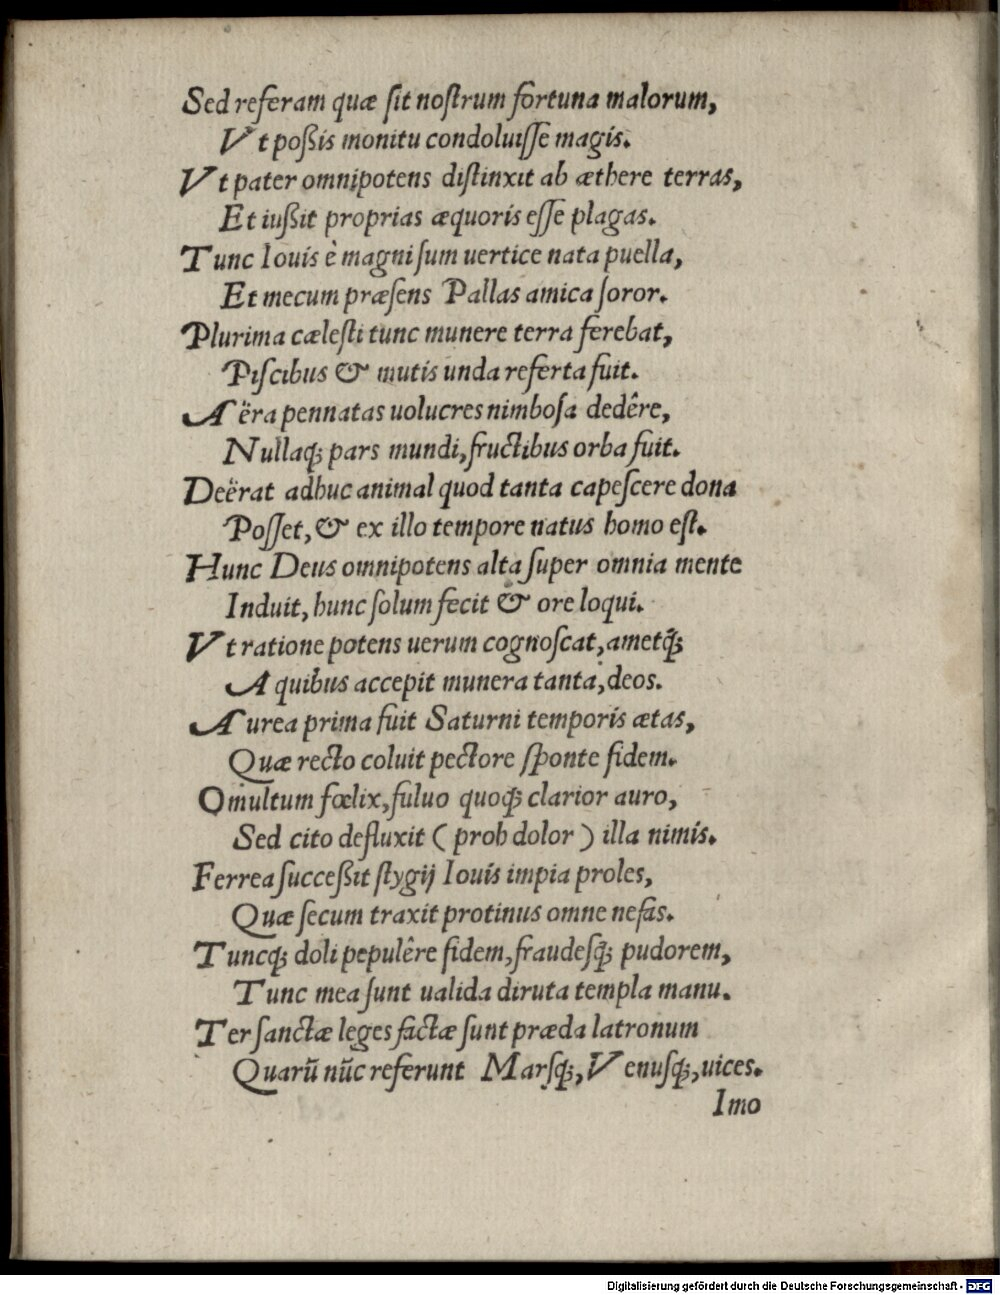 Sed referam quæ ſit noſtrum fortuna malorum,
Vt poßis monitu condoluiſſe magis.
Vt pater omnipotens diſtinxit ab æthere terras,
Et iußit proprias æquoris eſſe plagas.
Tunc Iouis è magni ſum uertice nata puella,
Et mecum præſens Pallas amica ſoror.
Plurima cæleſti tunc munere terra ferebat,
Piſcibus & mutis unda referta fuit.
Aëra pennatas uolucres nimboſa dedêre,
Nullaq; pars mundi, fructibus orba fuit.
Deërat adhuc animal quod tanta capeſcere dona
Poſſet, & ex illo tempore natus homo eſt.
Hunc Deus omnipotens alta ſuper omnia mente
Induit, hunc ſolum fecit & ore loqui.
Vt ratione potens uerum cognoſcat, ametq́;
A quibus accepit munera tanta, deos.
Aurea prima fuit Saturni temporis ætas,
Quæ recto coluit pectore ſponte fidem.
O multum fœlix, fuluo quoq; clarior auro,
Sed cito defluxit ( proh dolor ) illa nimis.
Ferrea ſucceßit ſtygij Iouis impia proles,
Quæ ſecum traxit protinus omne nefas.
Tuncq; doli pepulêre fidem, fraudesq́; pudorem,
Tunc mea ſunt ualida diruta templa manu.
Ter ſanctæ leges factæ ſunt præda latronum
Quarū nūc referunt Marſq́;, Venuſq́;, uices.
Imo
Digitalisierung gefördert durch die Deutsche Forschungsgemeinschaft - DFG